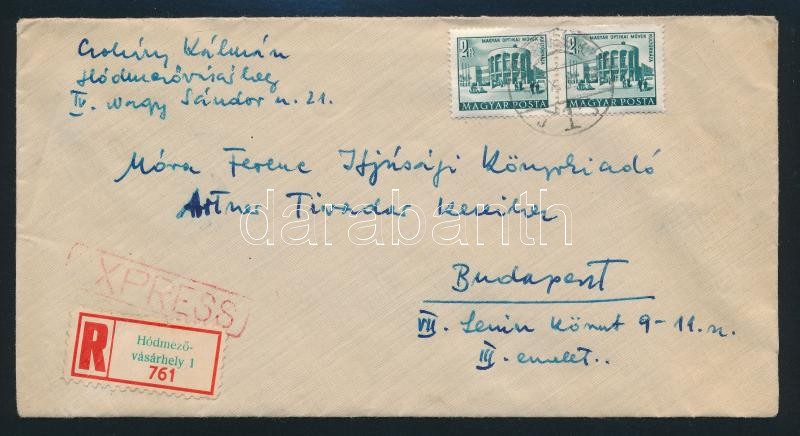 Csohány Kálmán
Hódmezővásárhely
IV. Nagy Sándor u. 21.
2 Ft
MAGYAR OPTIKAI MŰVEK
MAGYAR POSTA
2 Ft
MAGYAR OPTIKAI MŰVEK
MAGYAR POSTA
Móra Ferenc Ifjúsági Könyvkiadó
Artner Tivadar
darabanth
Budapest
VII. Lenin Körut 9-11. sz.
III. emelet..
XPRESS
R
Hódmező-
vásárhely 1
761